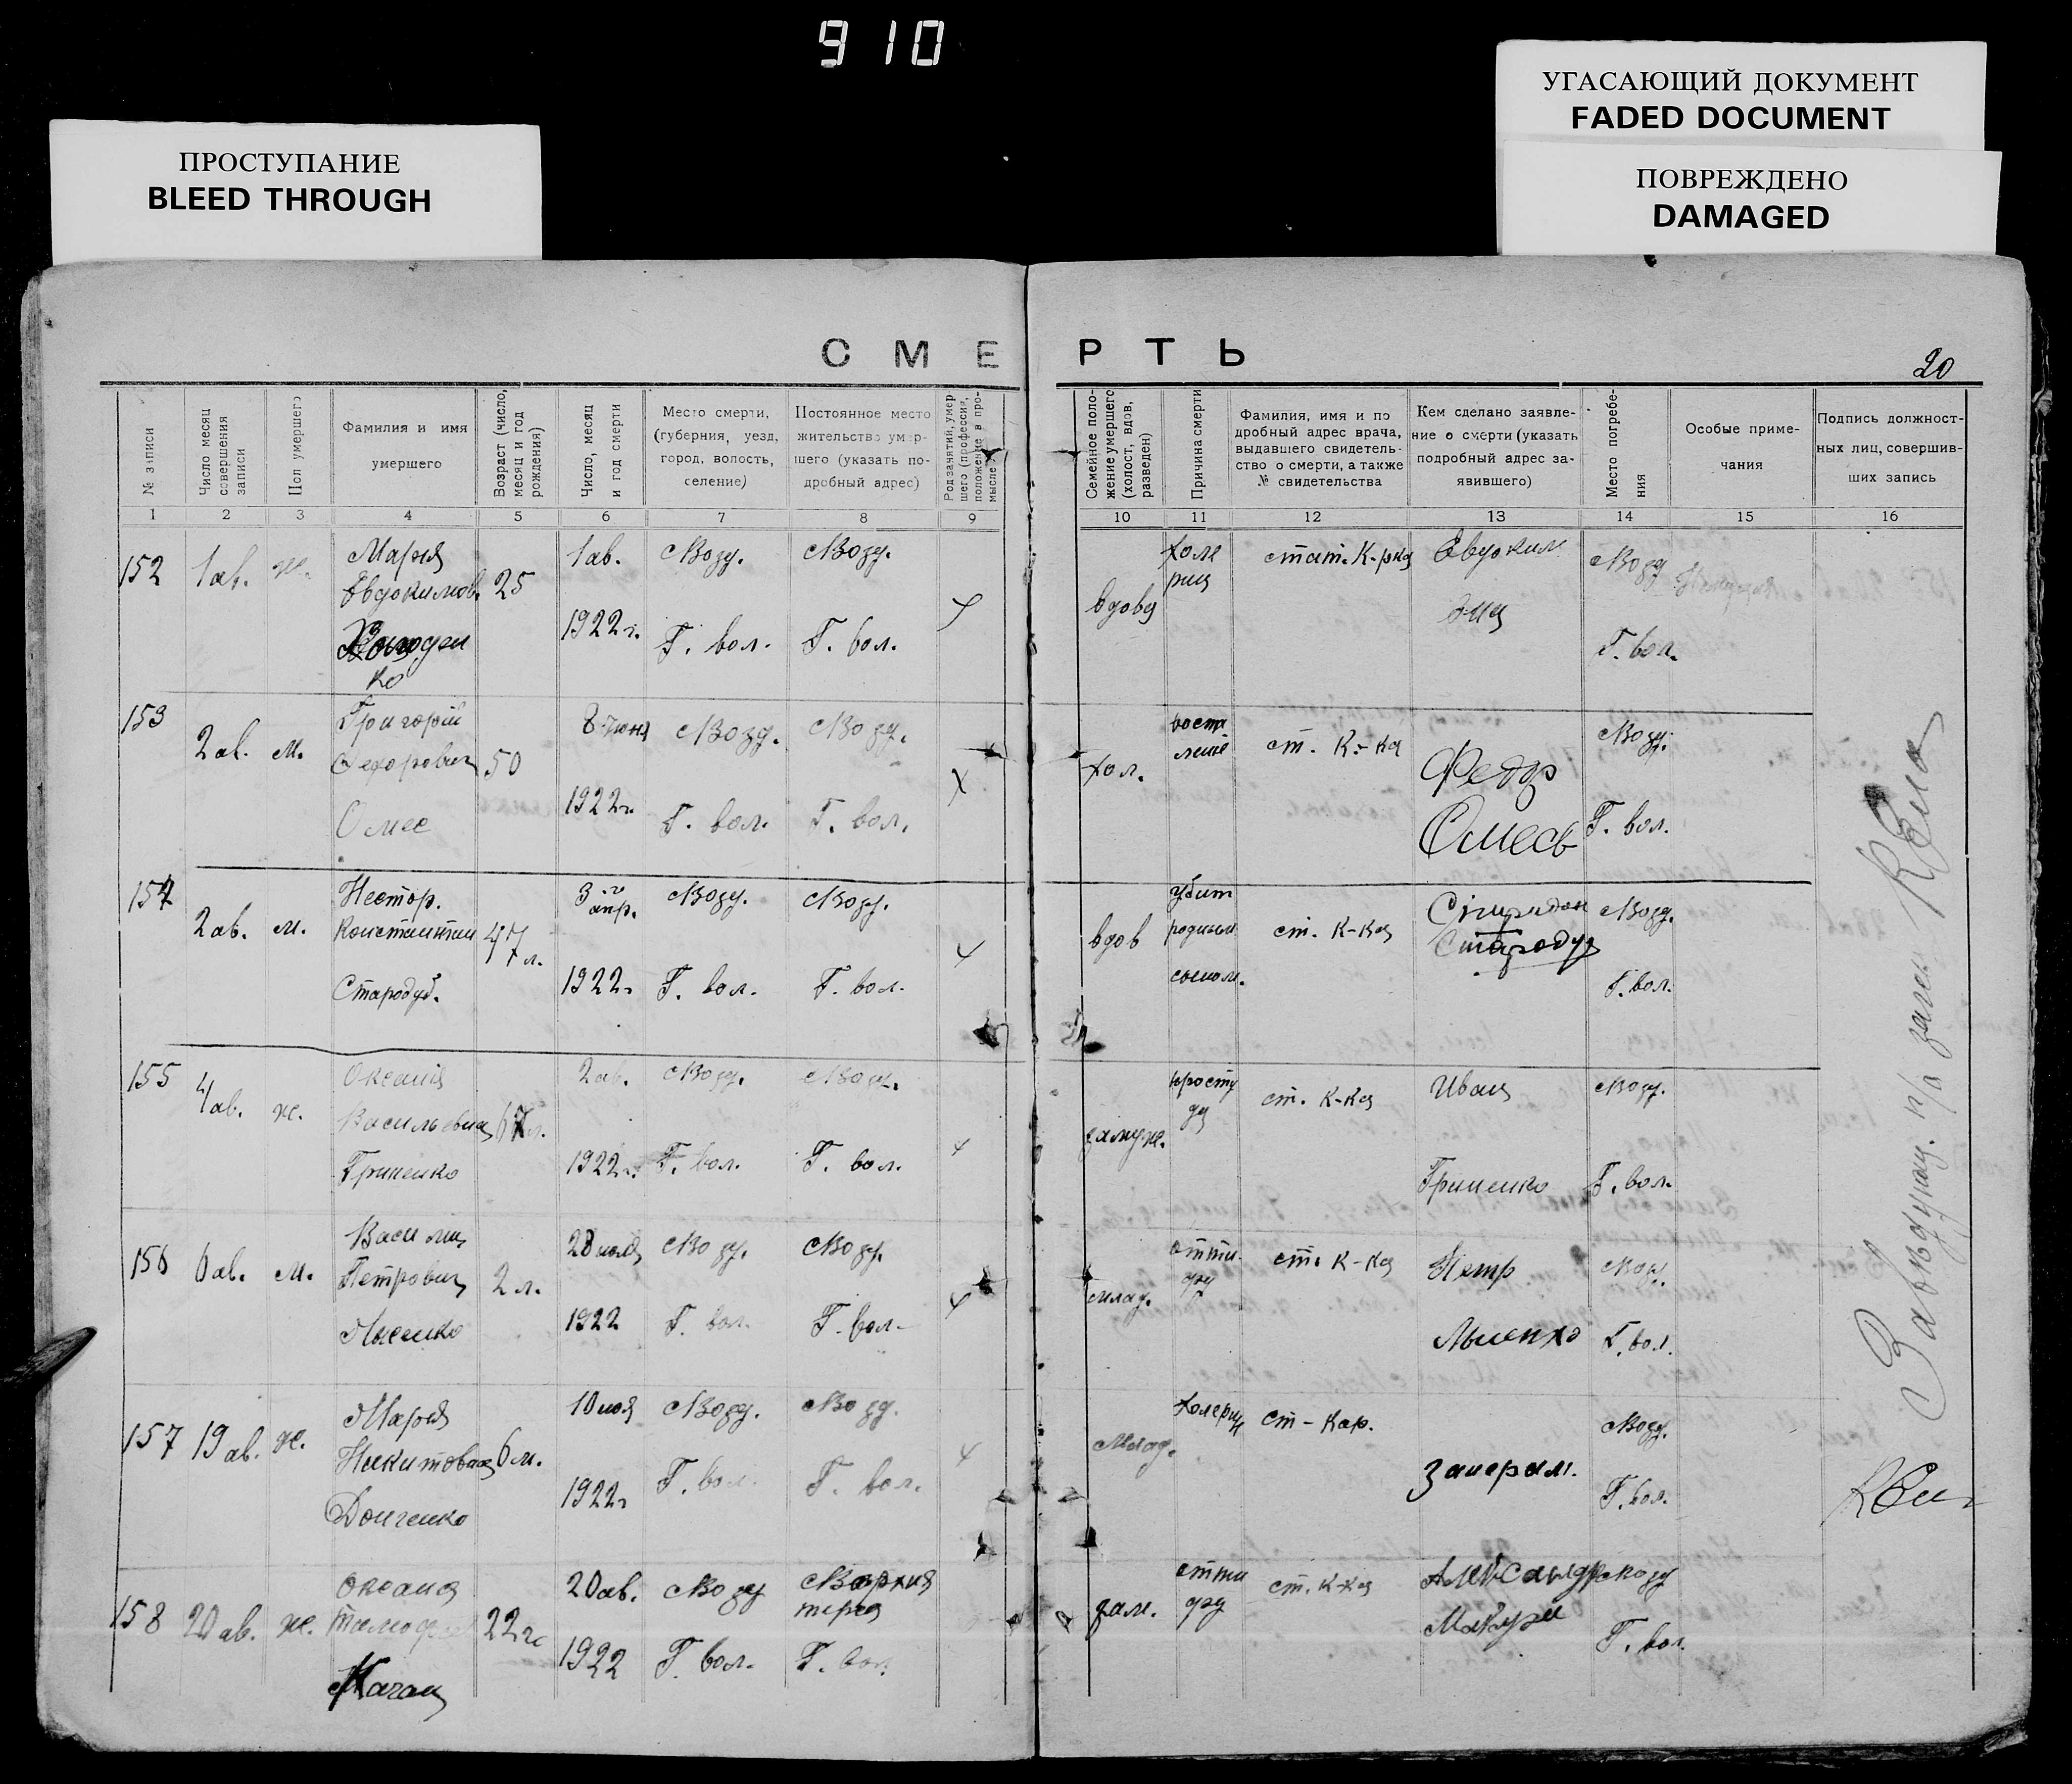 910
УГАСАЮЩИЙ ДОКУМЕНТ
FADED DOCUMENT
ПРОСТУПАНИЕ
BLEED THROUGH
ПОВРЕЖДЕНО
DAMAGED
СМЕРТЬ
20
№ записи
Число месяц
совершения
записи
Пол умершего
Фамилия и имя
умершего
Возраст (число,
месяц и год
рождения)
Число, месяц
и год смерти
Место смерти,
(губерния, уезд,
город, волость,
селение)
Постоянное место
жительства умер-
шего (указать по-
дробный адрес)
Род занятий, умер-
шего (профессия,
положение в про-
мысле)
Семейное поло-
жение умершего
(холост, вдов,
разведен)
Причина смерти
Фамилия, имя и по
дробный адрес врача,
выдавшего свидетель-
ство о смерти, а также
№ свидетельства
Кем сделано заявле-
ние о смерти (указать
подробный адрес за-
явившего)
Место погребе-
ния
Особые приме-
чания
Подпись должност-
ных лиц, совершив-
ших запись
1 2 3 4 5 6 7 8 9 10 11 12 13 14 15 16
152
1 ав.
ж.
Мария
Евдокимов.
ко
25
1 ав.
1922 г.
Возд.
Г. вол.
Возд.
Г. вол.
вдова
холе
рия
стат. К-рка
Евдоким
Возд
Г. вол.
153
2 ав.
м.
Григорій
Федорович
Омес
50
8 июня
1922 г.
Возд.
Г. вол.
Возд.
Г. вол.
хол.
воспа
леніе
ст. К-ка
Федор
Омесь
Возд.
Г. вол.
154
2 ав.
м.
Нестор.
Константин
Стародуб.
47 л.
3-го
апр.
1922 г
Возд.
Г. вол.
Возд.
Г. вол.
вдов
убит
родным
сыном.
ст. К-ка
Спиридон
Стародуб
Возд.
Г. вол.
155
4 ав.
ж.
Оксания
Васильевна
Гриненко
67 л.
2 ав.
1922 г.
Возд.
Г. вол.
Возд.
Г. вол.
замуж.
просту
да
ст. К-ка
Иван
Гриненко
Возд.
Г. вол.
156
6 ав.
м.
Василий
Петрович
Лысенко
2 л.
28 июля
1922
Возд.
Г. вол.
Возд.
Г. вол.
млад.
ст. К-ка
Петр
Возд.
Г. вол.
157
19 ав.
ж.
Мария
Никитовна
Донченко
6 м.
10 июля
1922 г
Возд.
Г. вол.
Возд.
Г. вол.
млад.
холерия
ст-Кар.
Возд.
Г. вол.
158
20 ав.
ж.
Оксана
Тимофе
Качан
22 г.
20 ав.
1922
Возд
Г. вол.
Г. вол
зам.
ст. К-ка
Александр
Возд
Г. вол.